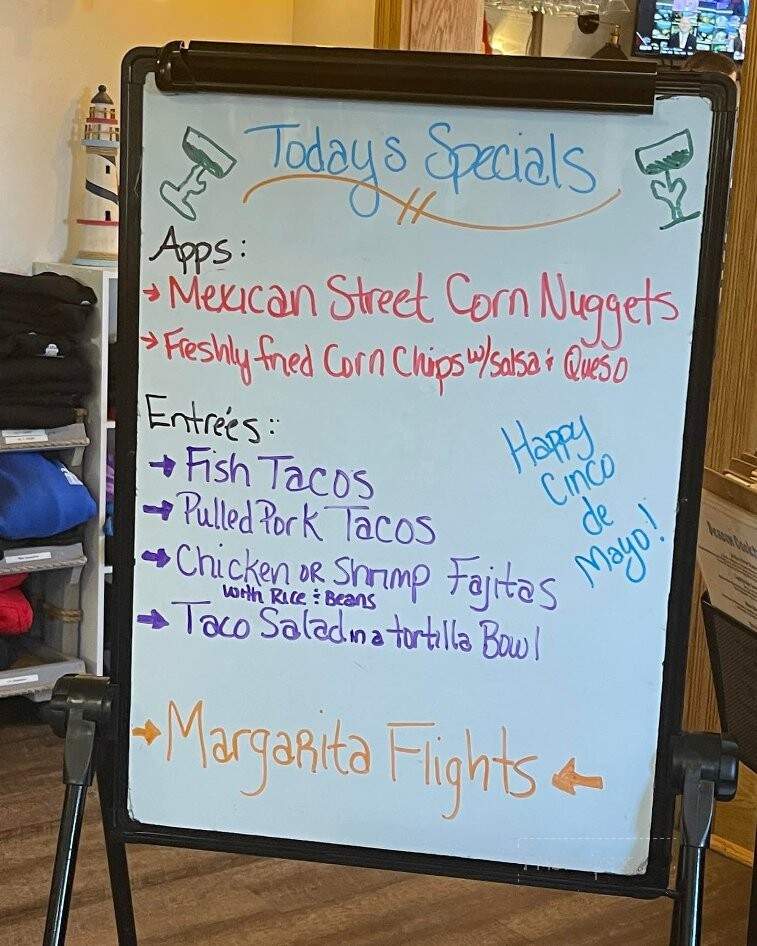 Todays Specials
Apps:
→ Mexican Street Corn Nuggets
→ Freshly fried Corn Chips w/salsa & Queso
Entrées:
→ Fish Tacos
→ Pulled Pork Tacos
→ Chicken OR Shrimp Fajitas
with Rice & Beans
→ Taco Salad in a tortilla Bowl
Happy
Cinco
de
Mayo!
→ Margarita Flights ←